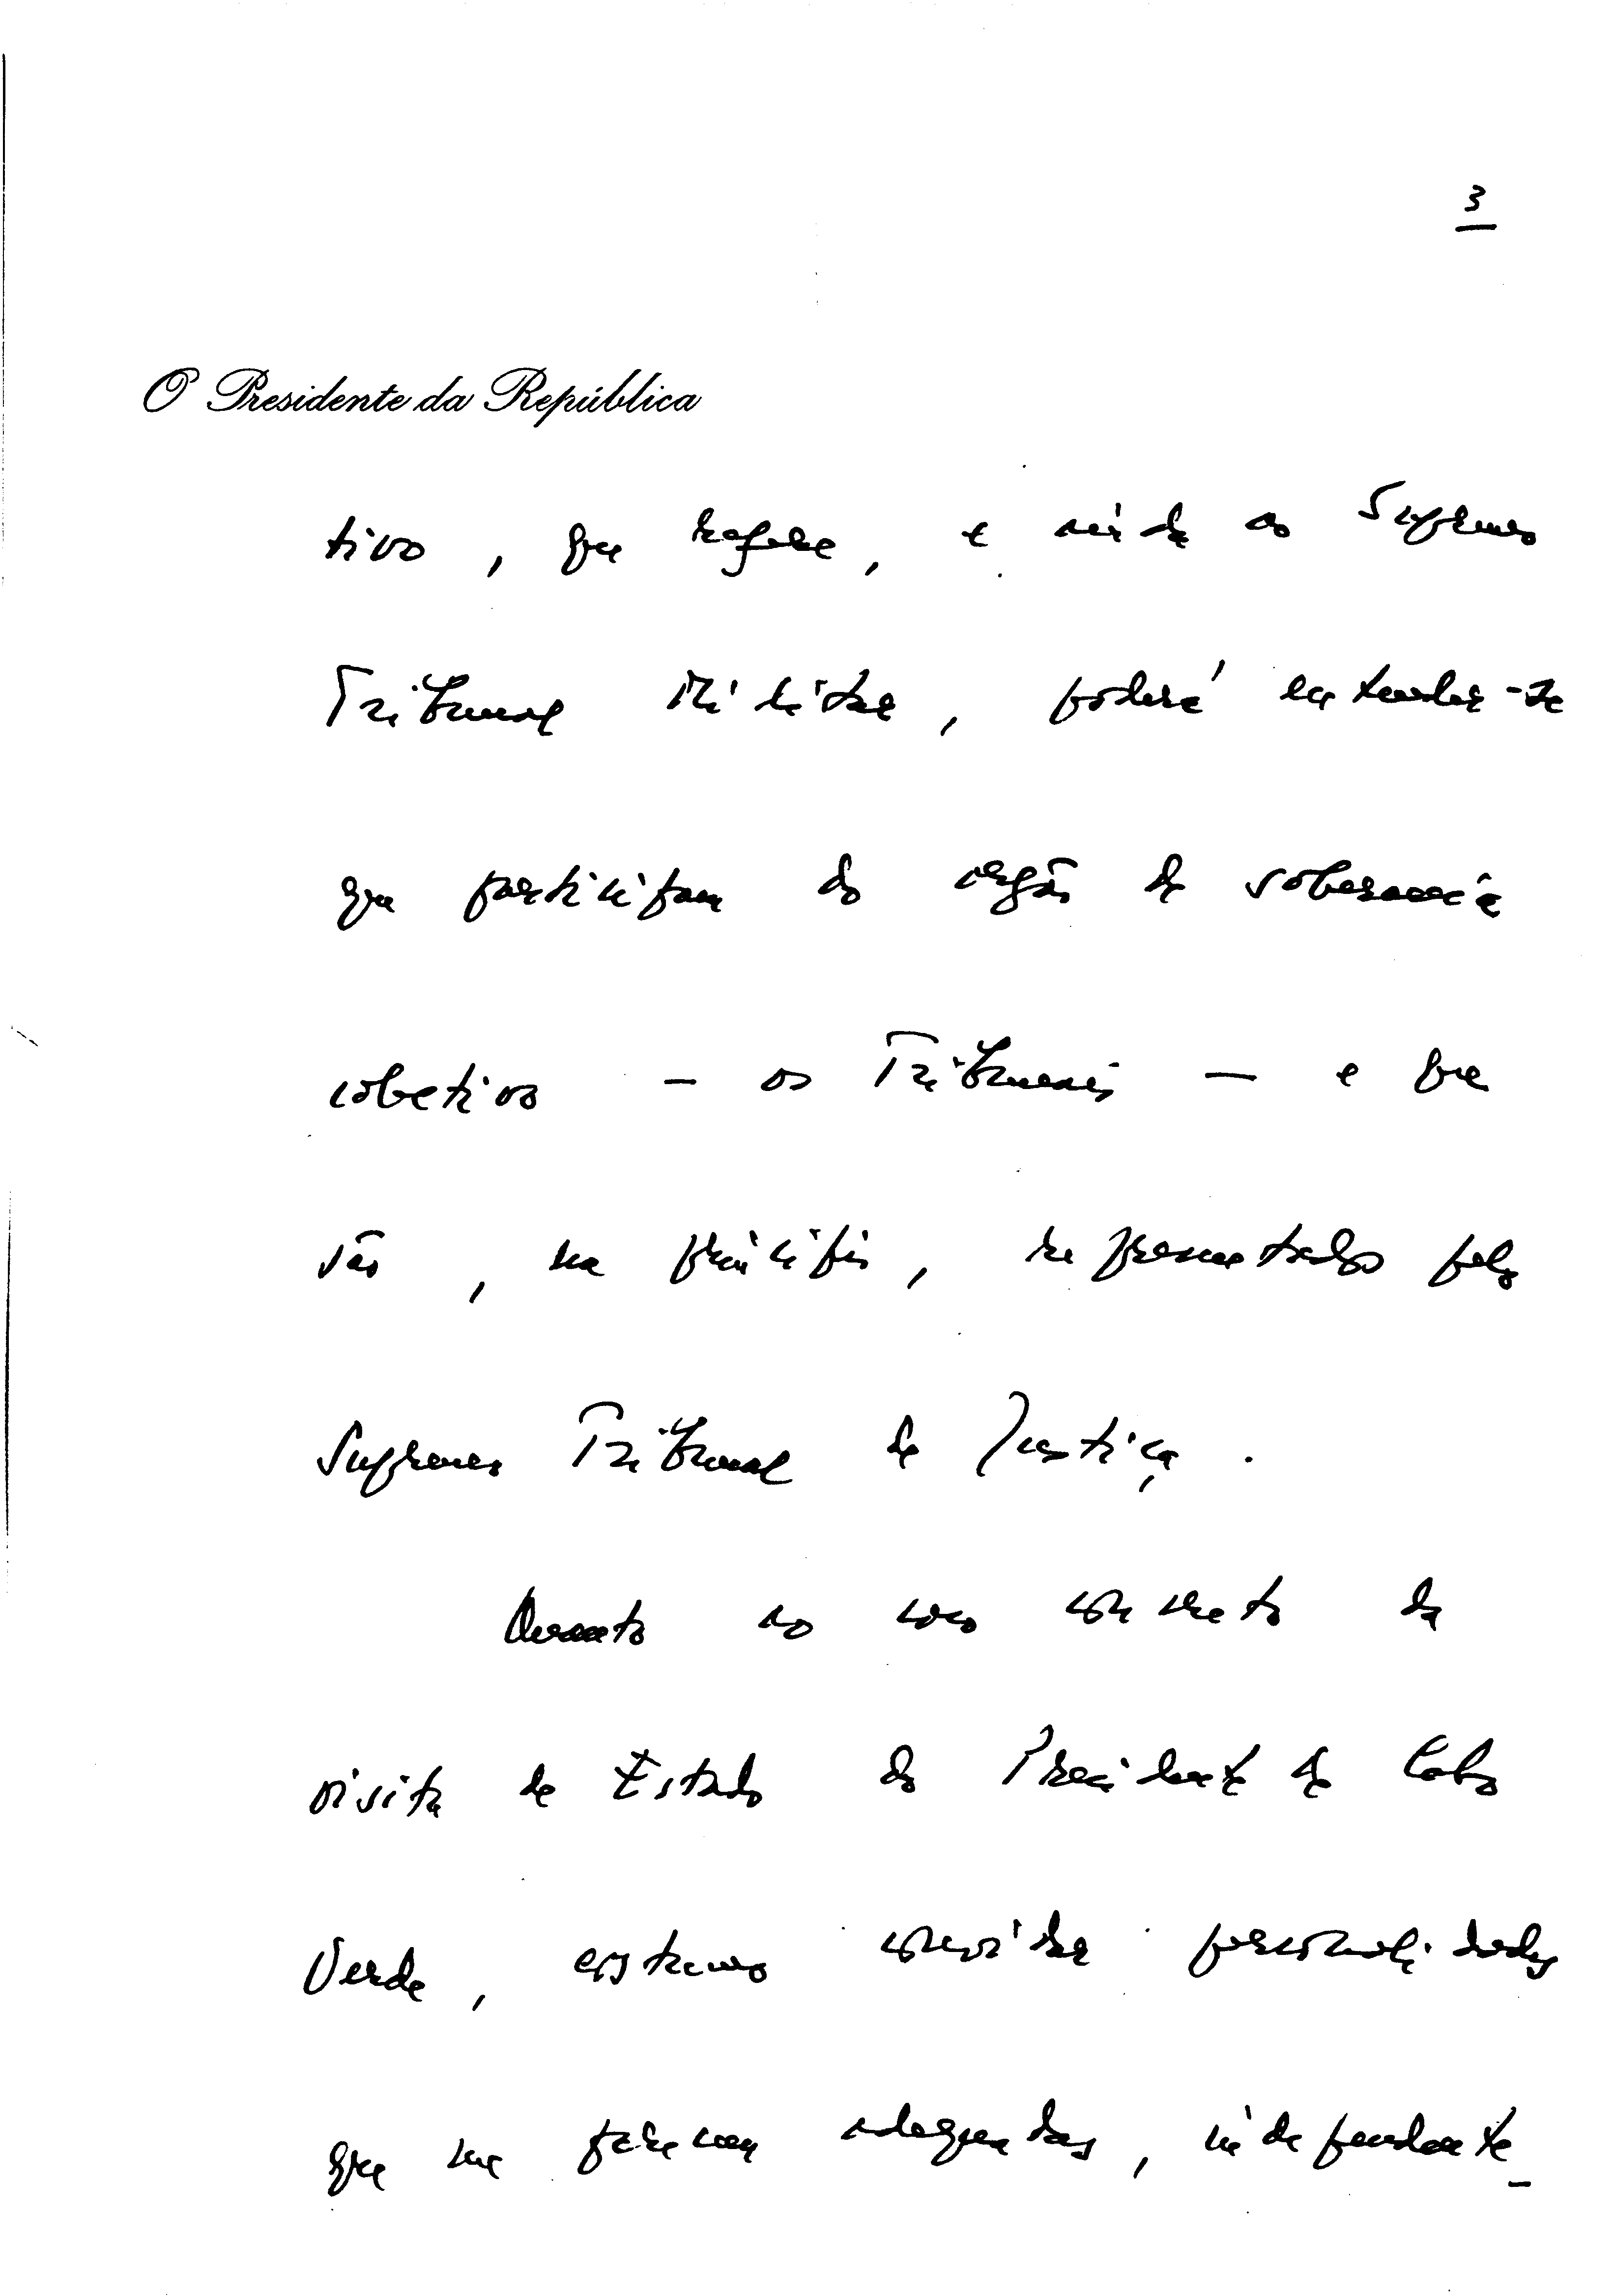 3
O Presidente da República
tivo, que refere, e ainda ao Supremo
Tribunal Militar, poderá entender-se
que participam do orgão de soberania
coletivo - os Tribunais - e que
são, em princípio, representados pelo
Supremo Tribunal de Justiça.
Quanto ao caso concreto da
visita de Estado do Presidente de Cabo
Verde, costumo convidar personalidades
que me parecem adequadas, independente_